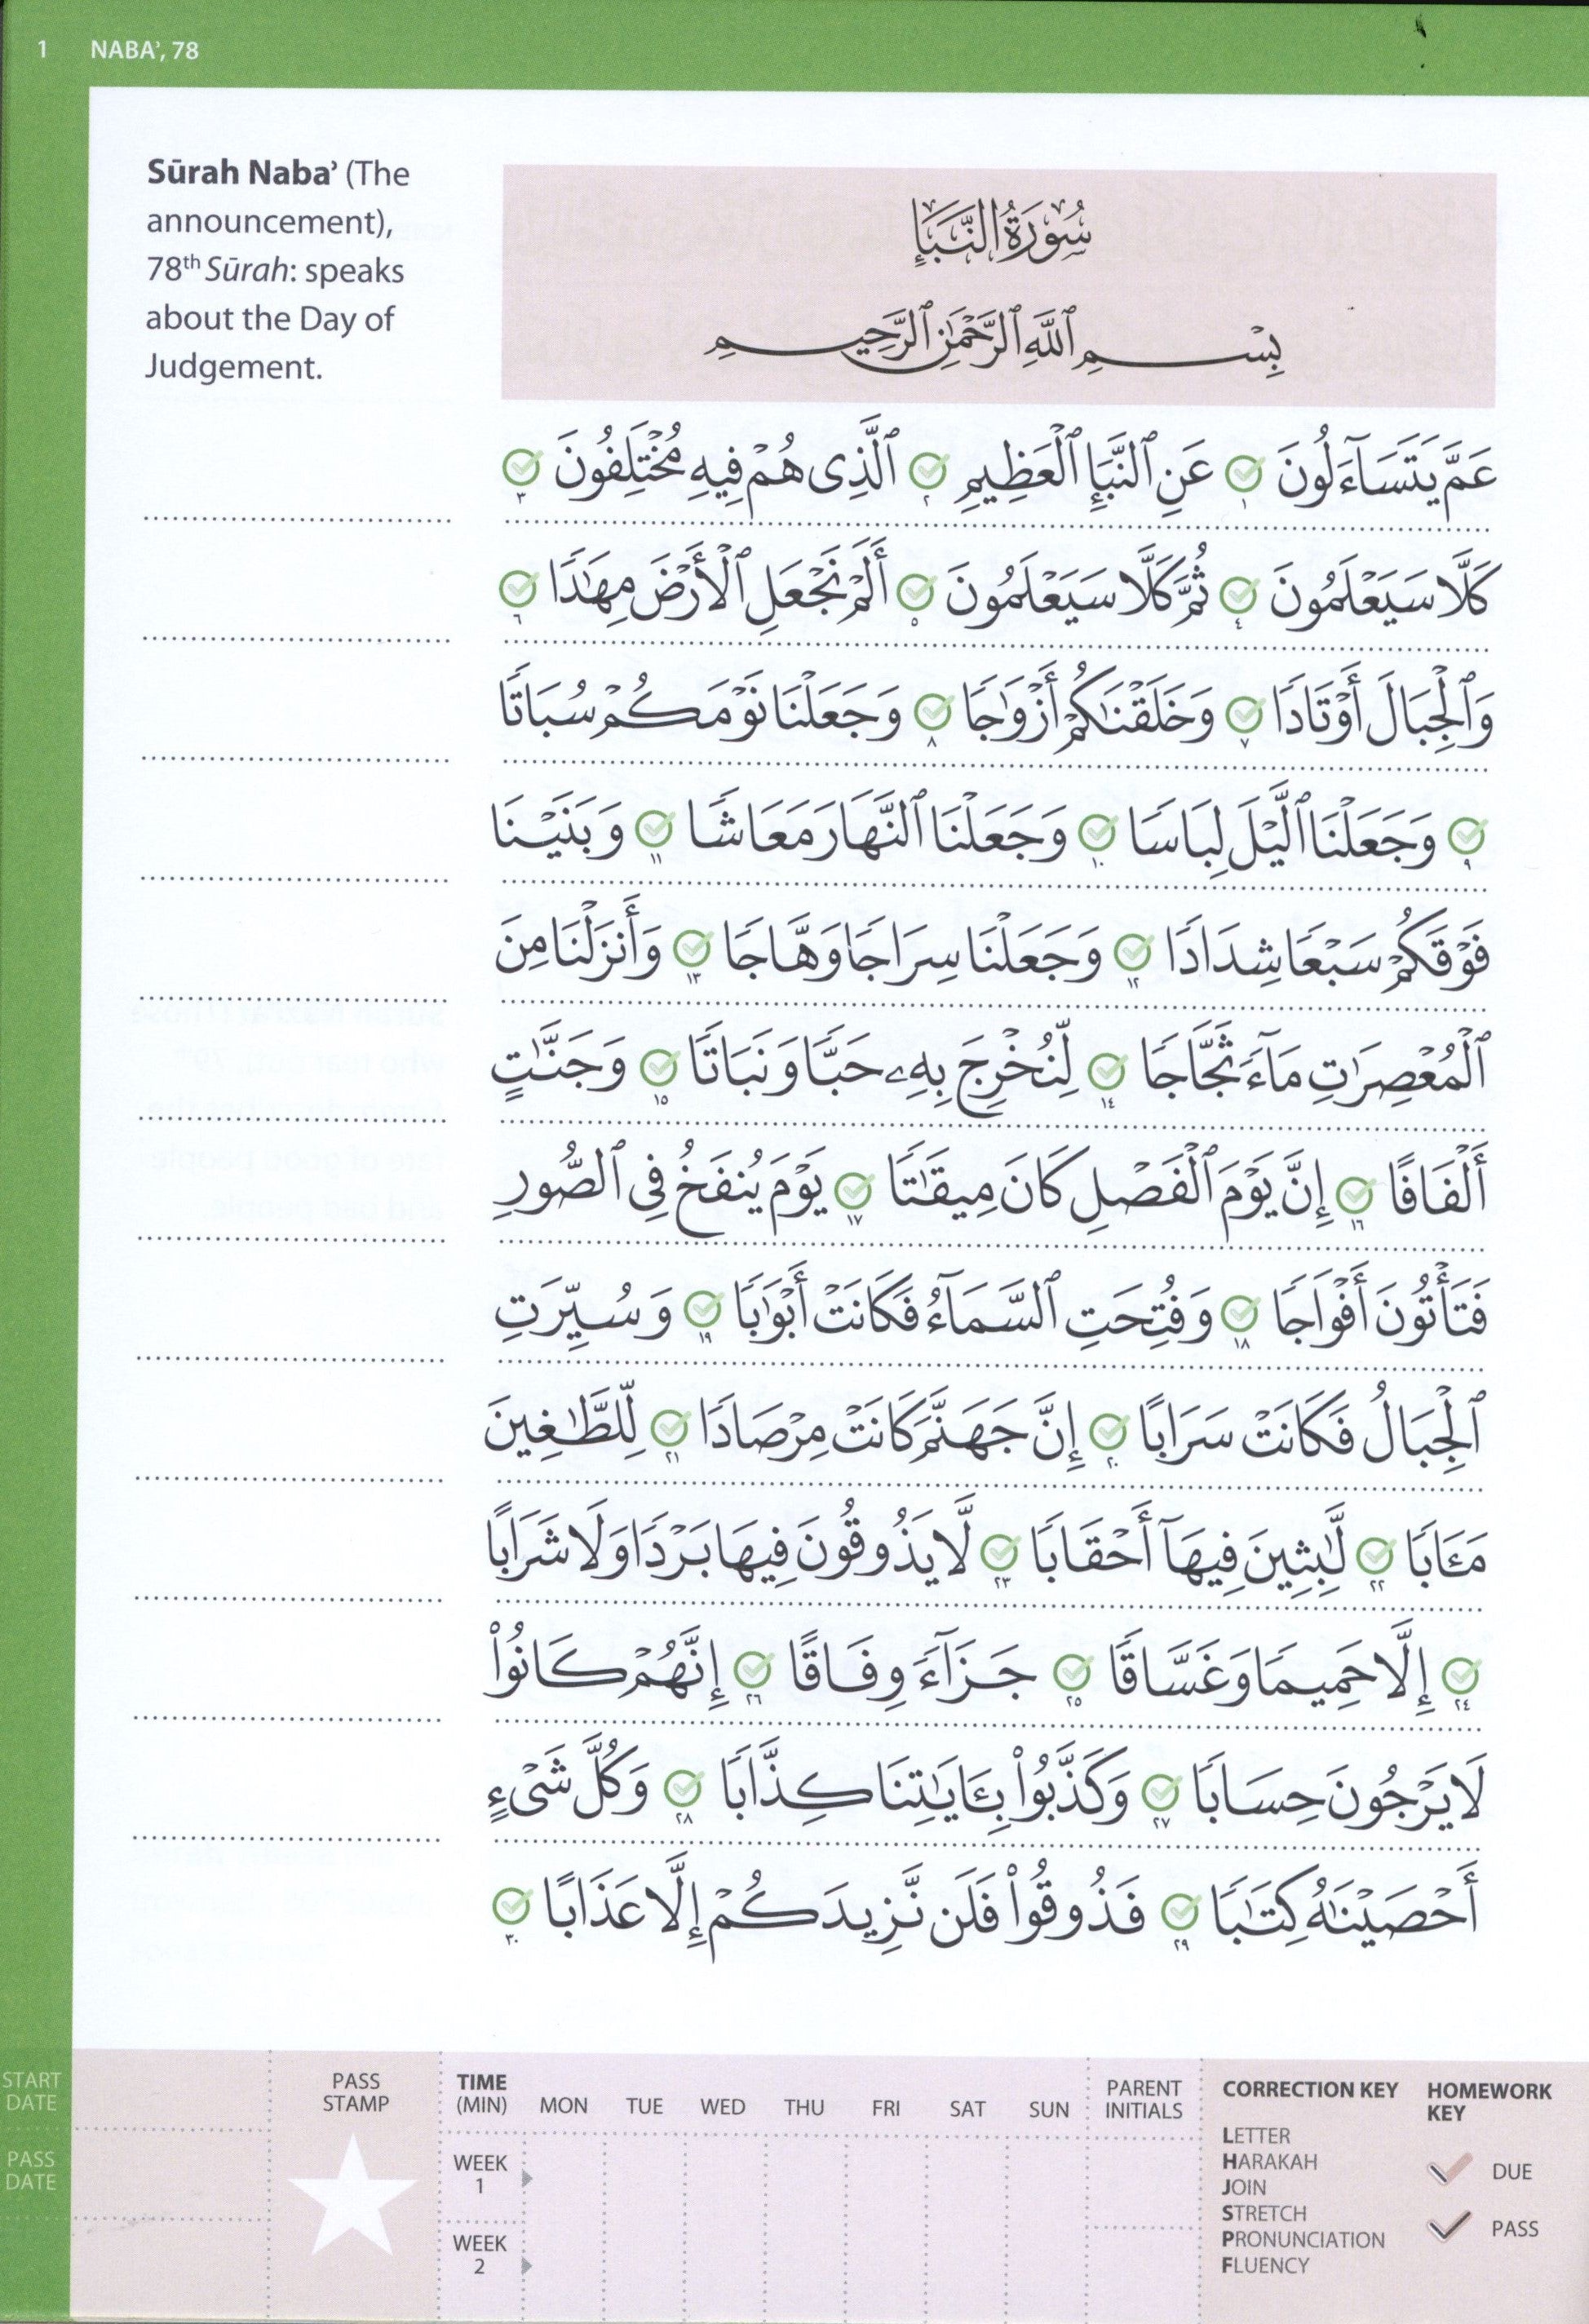 1 NABAʾ, 78
Sūrah Nabaʾ (The
announcement),
78th Sūrah: speaks
about the Day of
Judgement.
سُورَةُ النَّبَإِ
بِسْمِ ٱللَّهِ ٱلرَّحْمَٰنِ ٱلرَّحِيمِ
عَمَّ يَتَسَآءَلُونَ ١ عَنِ ٱلنَّبَإِ ٱلْعَظِيمِ ٢ ٱلَّذِى هُمْ فِيهِ مُخْتَلِفُونَ ٣
كَلَّا سَيَعْلَمُونَ ٤ ثُمَّ كَلَّا سَيَعْلَمُونَ ٥ أَلَمْ نَجْعَلِ ٱلْأَرْضَ مِهَٰدًا ٦
وَٱلْجِبَالَ أَوْتَادًا ٧ وَخَلَقْنَٰكُمْ أَزْوَٰجًا ٨ وَجَعَلْنَا نَوْمَكُمْ سُبَاتًا
٩ وَجَعَلْنَا ٱلَّيْلَ لِبَاسًا ١٠ وَجَعَلْنَا ٱلنَّهَارَ مَعَاشًا ١١ وَبَنَيْنَا
فَوْقَكُمْ سَبْعًا شِدَادًا ١٢ وَجَعَلْنَا سِرَاجًا وَهَّاجًا ١٣ وَأَنزَلْنَا مِنَ
ٱلْمُعْصِرَٰتِ مَآءً ثَجَّاجًا ١٤ لِّنُخْرِجَ بِهِۦ حَبًّا وَنَبَاتًا ١٥ وَجَنَّٰتٍ
أَلْفَافًا ١٦ إِنَّ يَوْمَ ٱلْفَصْلِ كَانَ مِيقَٰتًا ١٧ يَوْمَ يُنفَخُ فِى ٱلصُّورِ
فَتَأْتُونَ أَفْوَاجًا ١٨ وَفُتِحَتِ ٱلسَّمَآءُ فَكَانَتْ أَبْوَٰبًا ١٩ وَسُيِّرَتِ
ٱلْجِبَالُ فَكَانَتْ سَرَابًا ٢٠ إِنَّ جَهَنَّمَ كَانَتْ مِرْصَادًا ٢١ لِّلطَّٰغِينَ
مَـَٔابًا ٢٢ لَّٰبِثِينَ فِيهَآ أَحْقَابًا ٢٣ لَّا يَذُوقُونَ فِيهَا بَرْدًا وَلَا شَرَابًا
٢٤ إِلَّا حَمِيمًا وَغَسَّاقًا ٢٥ جَزَآءً وِفَاقًا ٢٦ إِنَّهُمْ كَانُوا۟
لَا يَرْجُونَ حِسَابًا ٢٧ وَكَذَّبُوا۟ بِـَٔايَٰتِنَا كِذَّابًا ٢٨ وَكُلَّ شَىْءٍ
أَحْصَيْنَٰهُ كِتَٰبًا ٢٩ فَذُوقُوا۟ فَلَن نَّزِيدَكُمْ إِلَّا عَذَابًا ٣٠
START
DATE
PASS
DATE
PASS
STAMP
TIME
(MIN) MON TUE WED THU FRI SAT SUN
PARENT
INITIALS
WEEK
1
WEEK
2
CORRECTION KEY
LETTER
HARAKAH
JOIN
STRETCH
PRONUNCIATION
FLUENCY
HOMEWORK
KEY
DUE
PASS